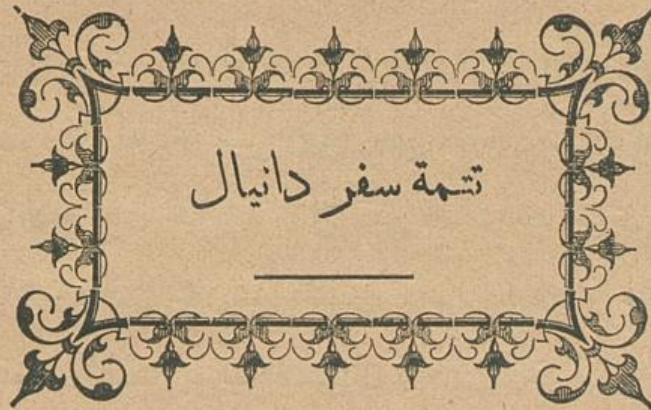 تتمة سفر دانيال